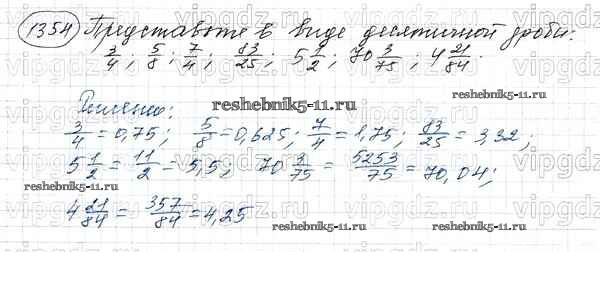 1354 Представьте в виде десятичной дроби:
3/4; 5/8; 7/4; 83/25; 5 1/2; 70 3/75; 4 21/84.
Решение:
reshebnik5-11.ru
reshebnik5-11.ru
3/4 = 0,75; 5/8 = 0,625; 7/4 = 1,75; 83/25 = 3,32;
5 1/2 = 11/2 = 5,5; 70 3/75 = 5253/75 = 70,04;
reshebnik5-11.ru
reshebnik5-11.ru
4 21/84 = 357/84 = 4,25
reshebnik5-11.ru
reshebnik5-11.ru
vipgdz.ru